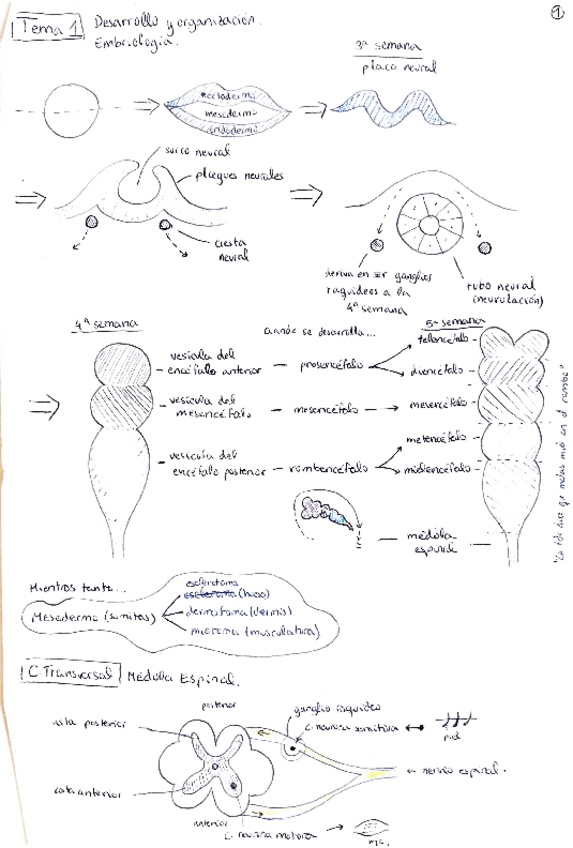 1
Tema 1 Desarrollo y organización.
Embriología.
3ª semana
placa neural
ectodermo
mesodermo
endodermo
surco neural
pliegues neurales
cresta
neural
deriva en ganglios
raquídeos a la
4ª semana
tubo neural
(neurulación)
4ª semana
dónde se desarrolla...
5ª semana
vesícula del
encéfalo anterior
prosencéfalo
telencéfalo
diencéfalo
vesícula del
mesencéfalo
mesencéfalo
mesencéfalo
vesícula del
encéfalo posterior
rombencéfalo
metencéfalo
mielencéfalo
médula
espinal
Mientras tanto...
Mesodermo (somitas)
esclerotoma
(hueso)
dermatoma (dermis)
miotoma (musculatura)
C. Transversal Médula Espinal.
posterior
ganglio raquídeo
asta posterior
C. neurona sensitiva
piel
nervio espinal.
asta anterior
anterior
C. neurona motora